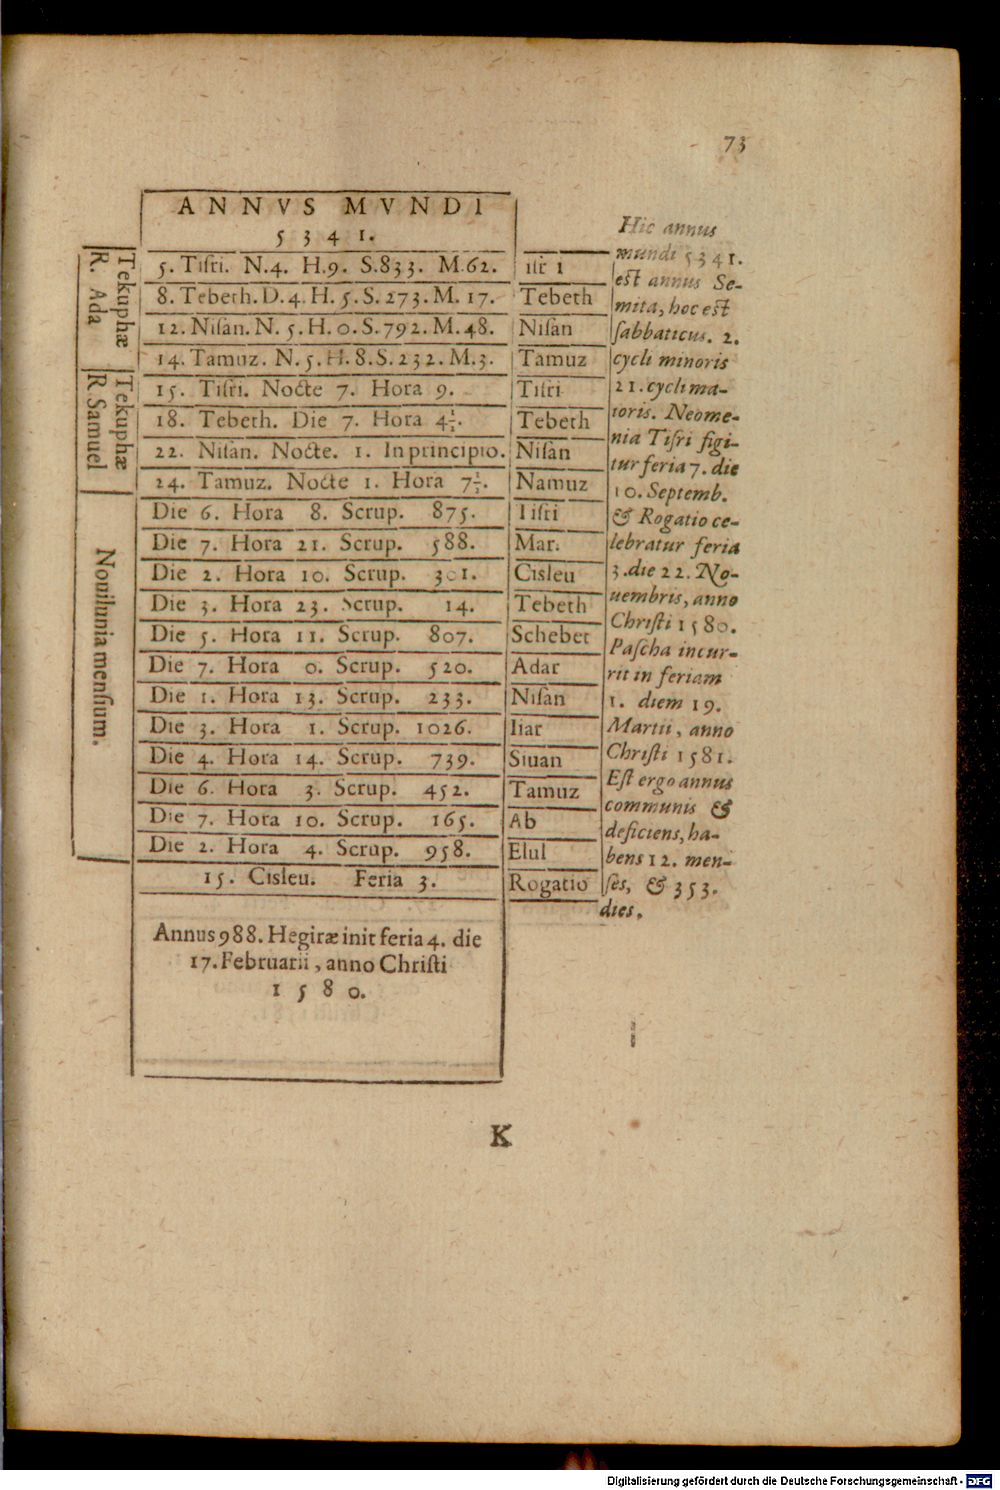 73
ANNVS MVNDI
5341.
Tekuphæ
R. Ada
5. Tiſri. N.4. H.9. S.833. M.62.
8. Tebeth. D. 4. H. 5. S. 273. M. 17. Tebeth
12. Niſan. N. 5. H. 0. S. 792. M. 48. Niſan
14. Tamuz. N. 5. H. 8. S. 232. M. 3. Tamuz
Tekuphæ
R. Samuel
15. Tiſri. Nocte 7. Hora 9. Tiſri
18. Tebeth. Die 7. Hora 4½. Tebeth
22. Niſan. Nocte. 1. In principio. Niſan
24. Tamuz. Nocte 1. Hora 7½. Namuz
Nouilunia menſium.
Die 6. Hora 8. Scrup. 875. Tiſri
Die 7. Hora 21. Scrup. 588. Mar.
Die 2. Hora 10. Scrup. 301. Cisleu
Die 3. Hora 23. Scrup. 14. Tebeth
Die 5. Hora 11. Scrup. 807. Schebet
Die 7. Hora 0. Scrup. 520. Adar
Die 1. Hora 13. Scrup. 233. Niſan
Die 3. Hora 1. Scrup. 1026. Iiar
Die 4. Hora 14. Scrup. 739. Siuan
Die 6. Hora 3. Scrup. 452. Tamuz
Die 7. Hora 10. Scrup. 165. Ab
Die 2. Hora 4. Scrup. 958. Elul
15. Cisleu. Feria 3. Rogatio
Annus 988. Hegiræ init feria 4. die
17. Februarii, anno Chriſti
1580.
Hic annus
mundi 5341.
eſt annus Se-
mita, hoc eſt
ſabbaticus. 2.
cycli minoris
21. cycli ma-
ioris. Neome-
nia Tiſri figi-
tur feria 7. die
10. Septemb.
& Rogatio ce-
lebratur feria
3. die 22. No-
uembris, anno
Chriſti 1580.
Paſcha incur-
rit in feriam
1. diem 19.
Martii, anno
Chriſti 1581.
Eſt ergo annus
communis &
deficiens, ha-
bens 12. men-
ſes, & 353.
dies.
K
Digitalisierung gefördert durch die Deutsche Forschungsgemeinschaft - DFG